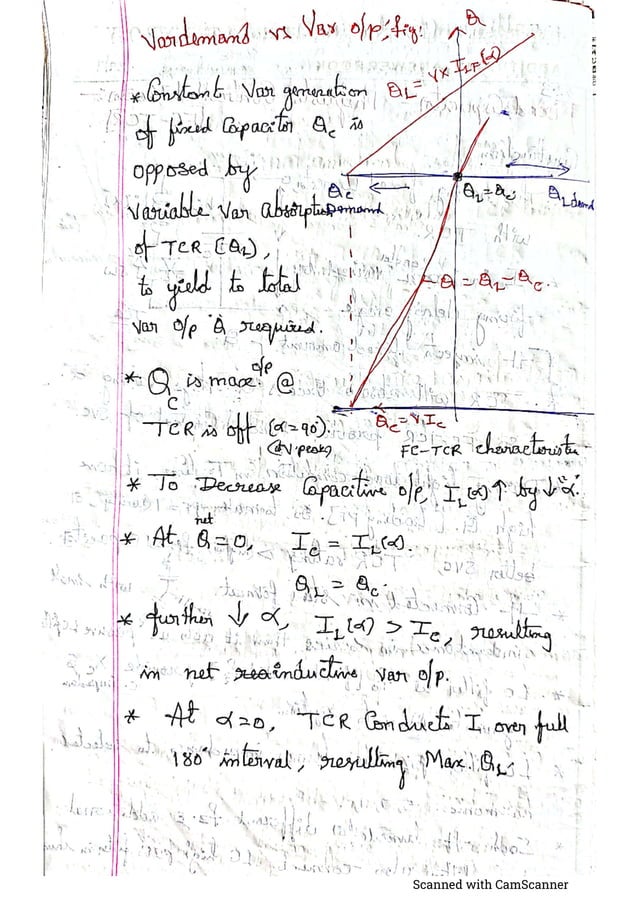 Var demand vs Var o/p, fig:
* Constant Var generation
of fixed Capacitor Qc is
opposed by
Variable Var absorption
of TCR (QL),
to yield to total
Var o/p Q required.
* Qc is max o/p @
TCR is off (α=90°).
(@V peaks)
Q
QL = V x ILF(α)
Qc demand
QL = Qc
QL demand
Q = QL - Qc
Qc = V.Ic
FC-TCR characteristic
* To Decrease Capacitive o/p, IL(α) ↑ by ↓ "α".
* At net Q=0, Ic = IL(α).
QL = Qc.
* further ↓ α, IL(α) > Ic, resulting
in net inductive Var o/p.
* At α=0, TCR Conducts I over full
180° interval, resulting Max. QL.
Scanned with CamScanner